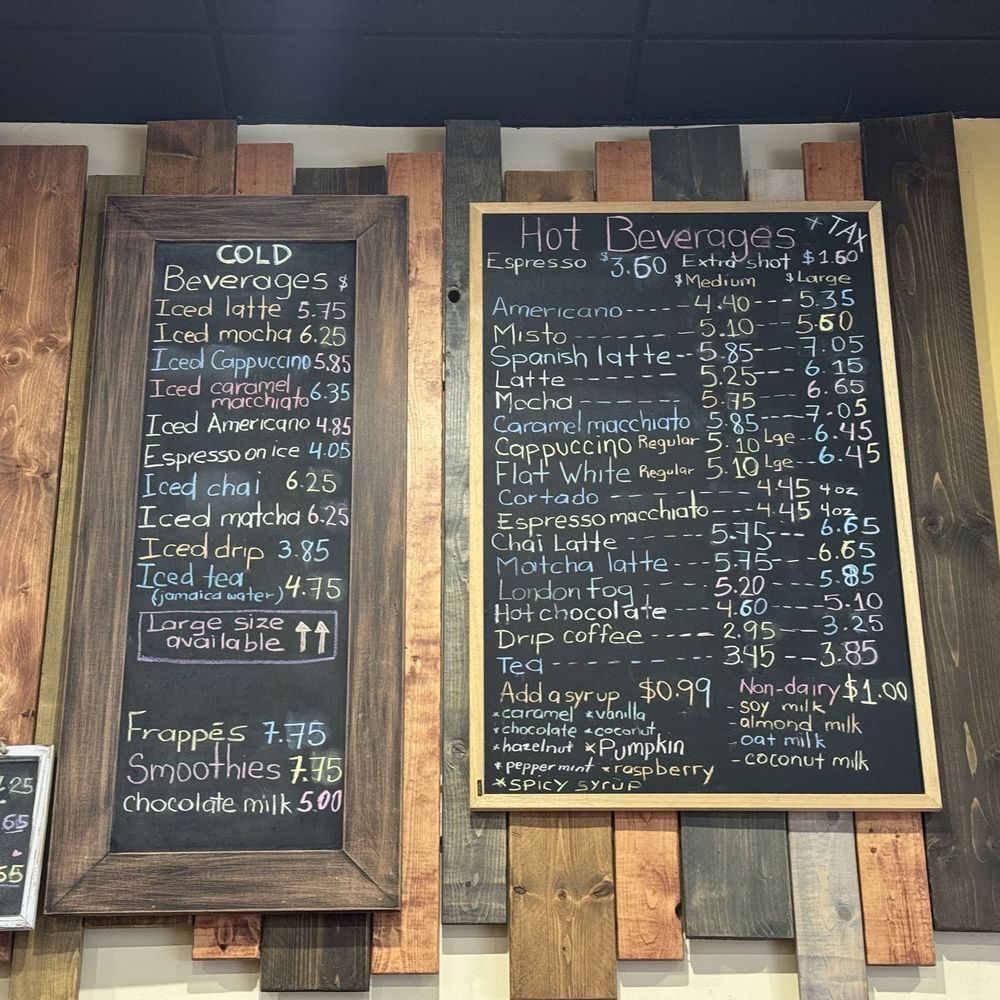 COLD
Beverages $
Iced latte 5.75
Iced mocha 6.25
Iced Cappuccino 5.85
Iced caramel
macchiato 6.35
Iced Americano 4.85
Espresso on ice 4.05
Iced chai 6.25
Iced matcha 6.25
Iced drip 3.85
Iced tea
(jamaica water) 4.75
Large size
available
Frappés 7.75
Smoothies 7.75
chocolate milk 5.00
Hot Beverages + TAX
Espresso $3.60 Extra shot $1.60
$Medium $Large
Americano---- 4.40--- 5.35
Misto 5.10 5.60
Spanish latte-- 5.85 7.05
Latte 5.25 6.15
Mocha 5.75 6.65
Caramel macchiato 5.85 7.05
Cappuccino Regular 5.10 Lge-- 6.45
Flat White Regular 5.10 Lge-- 6.45
Cortado 4.45 4oz
Espresso macchiato 4.45 4oz
Chai Latte 5.75 6.65
Matcha latte 5.75 6.65
London Fog 5.20 5.85
Hot chocolate 4.60 5.10
Drip coffee 2.95 3.25
Tea 3.45 3.85
Add a syrup $0.99 Non-dairy $1.00
*caramel *vanilla -soy milk
*chocolate *coconut -almond milk
*hazelnut *Pumpkin -oat milk
*peppermint *raspberry -coconut milk
*SPICY SYRUP
.25
65